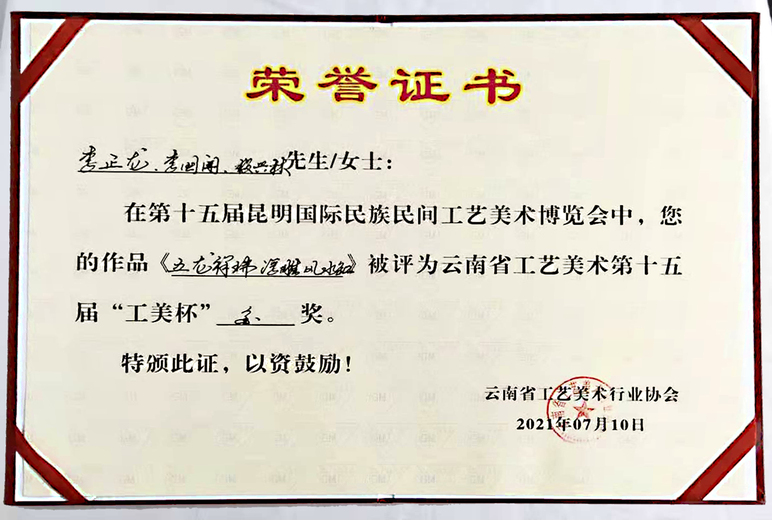 荣誉证书
李正龙、李国闻、段兴林先生/女士:
在第十五届昆明国际民族民间工艺美术博览会中,您
的作品《五龙祥瑞 风水缸》被评为云南省工艺美术第十五
届“工美杯”金奖。
特颁此证,以资鼓励!
云南省工艺美术行业协会
2021年07月10日